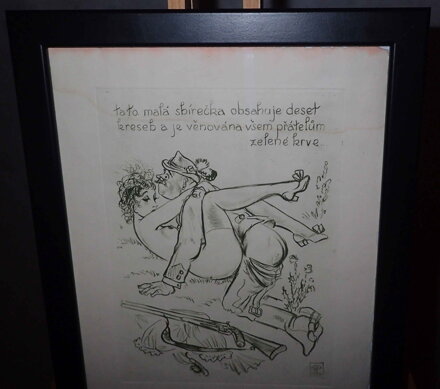 tato malá sbírečka obsahuje deset
kreseb a je věnována všem přátelům
zelené krve...